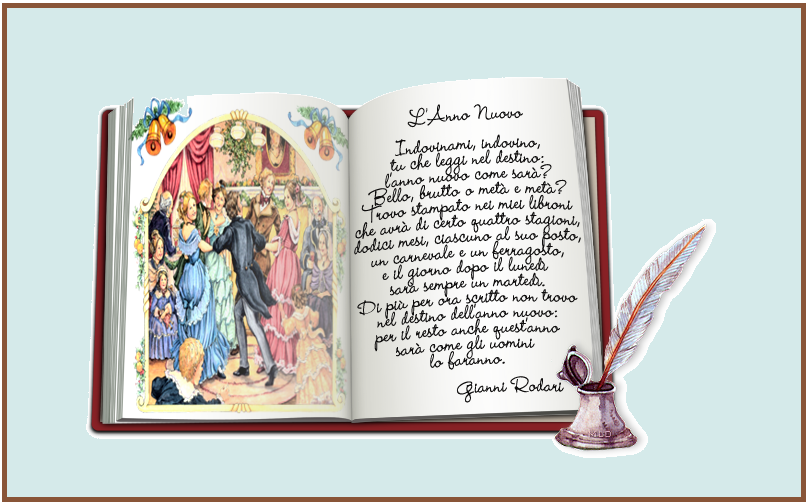 L'Anno Nuovo
Indovinami, indovino,
tu che leggi nel destino:
l'anno nuovo come sarà?
Bello, brutto o metà e metà?
Trovo stampato nei miei libroni
che avrà di certo quattro stagioni,
dodici mesi, ciascuno al suo posto,
un carnevale e un ferragosto,
e il giorno dopo il lunedì
sarà sempre un martedì.
Di più per ora scritto non trovo
nel destino dell'anno nuovo:
per il resto anche quest'anno
sarà come gli uomini
lo faranno.
Gianni Rodari